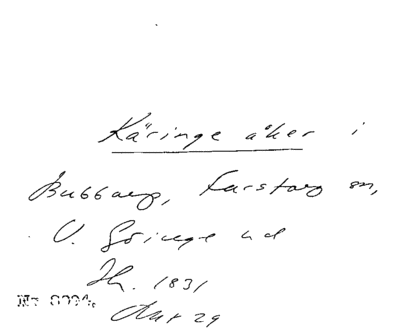 Käringe åker i
Bubbarp, Farstorp sn,
V. Göinge hd
Sh. 1831
Akt 29